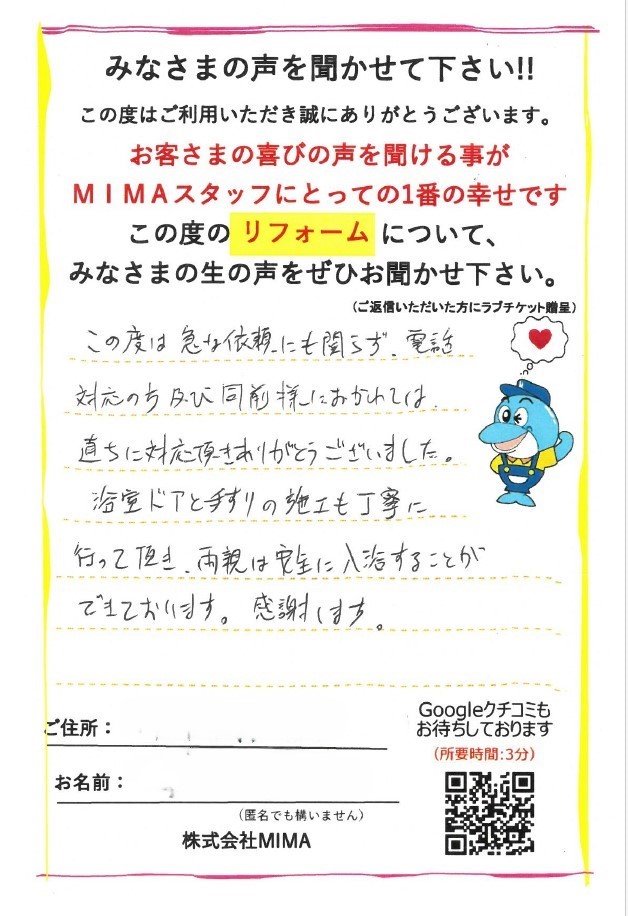 みなさまの声を聞かせて下さい!!
この度はご利用いただき誠にありがとうございます。
お客さまの喜びの声を聞ける事が
MIMAスタッフにとっての1番の幸せです
この度の リフォーム について、
みなさまの生の声をぜひお聞かせ下さい。
(ご返信いただいた方にラブチケット贈呈)
この度は急な依頼にも関らず、電話
対応の方及び同前様におかれては、
直ちに対応頂きありがとうございました。
浴室ドアと手すりの施工も丁寧に
行って頂き、両親は安全に入浴することが
できております。感謝します。
Googleクチコミも
お待ちしております
(所要時間:3分)
ご住所：
お名前：
(匿名でも構いません)
株式会社MIMA